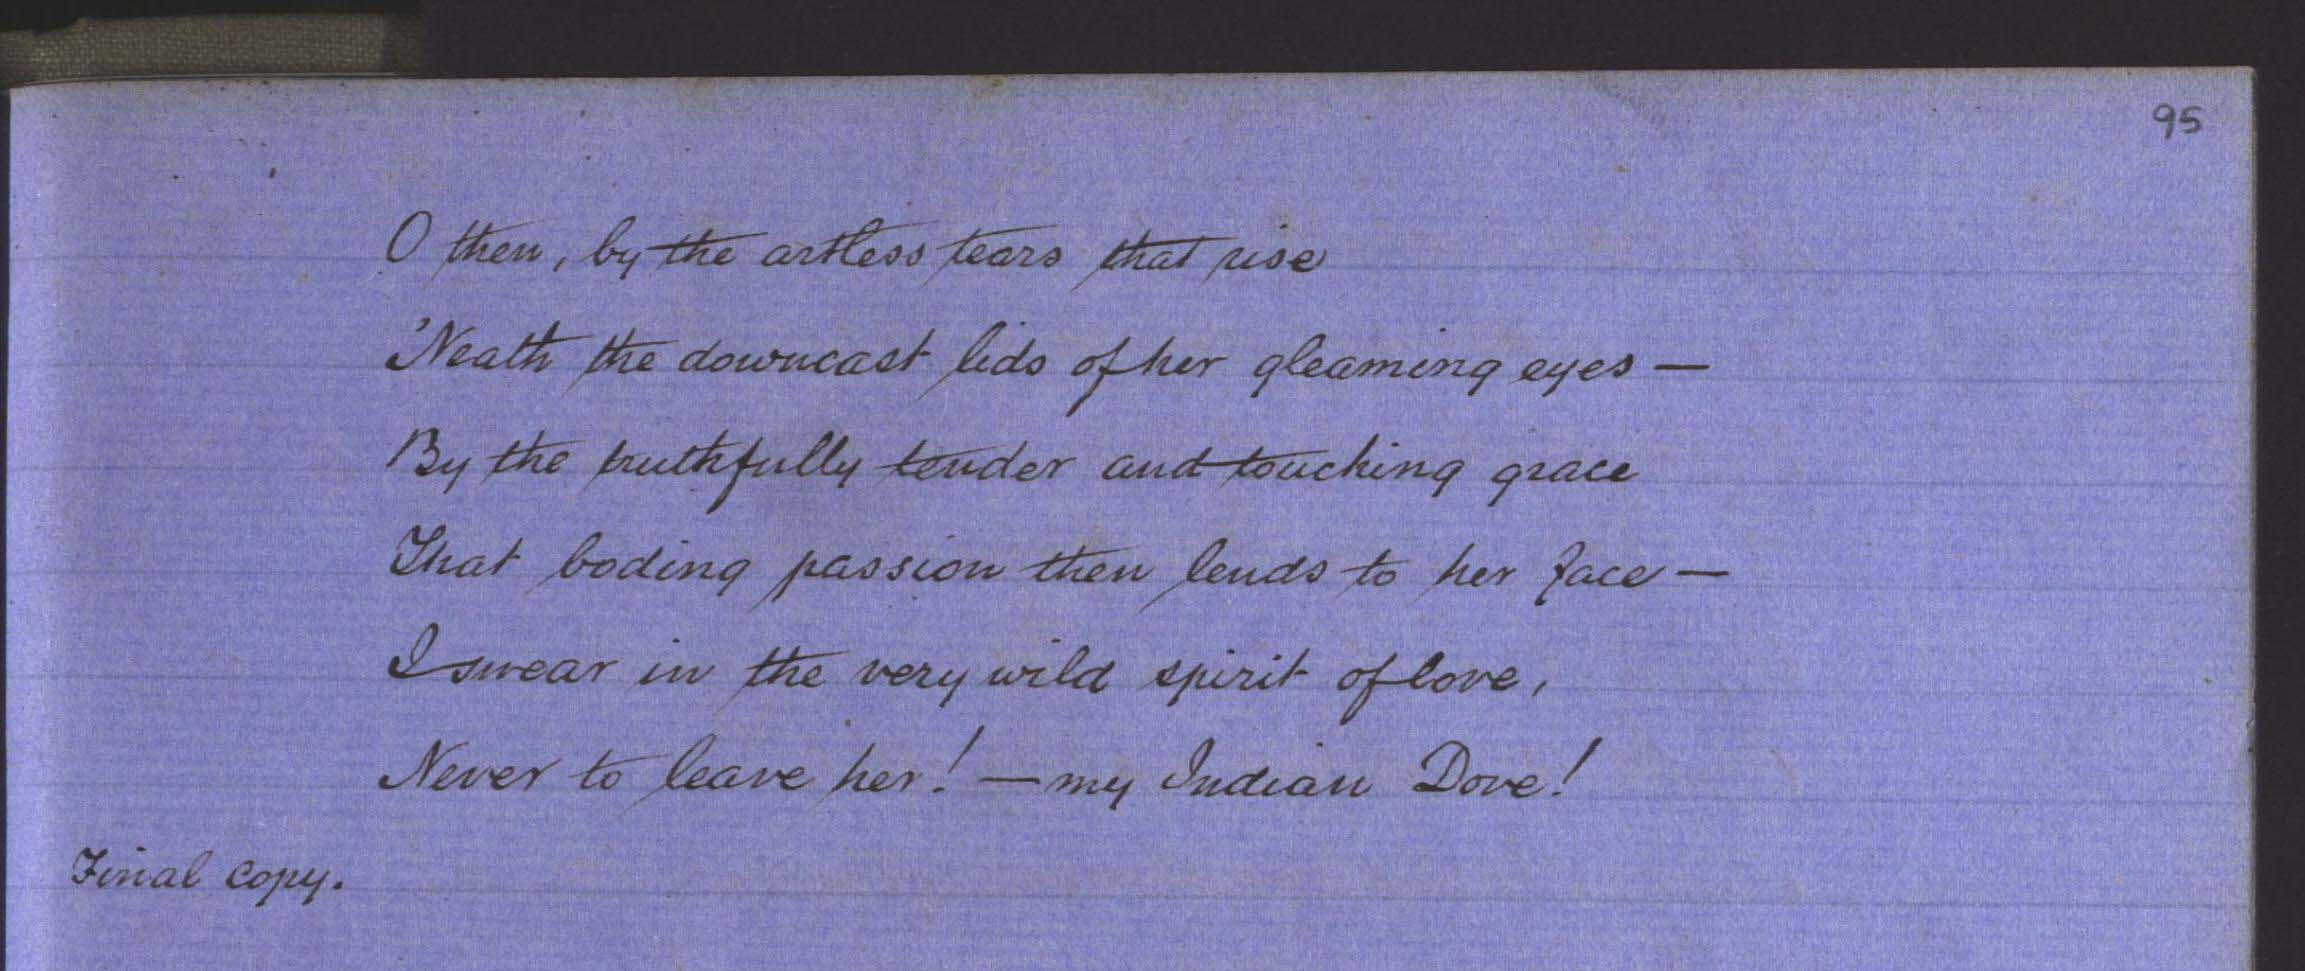 95
O then, by the artless tears that rise
'Neath the downcast lids of her gleaming eyes —
By the truthfully tender and touching grace
That boding passion then lends to her face —
I swear in the very wild spirit of love,
Never to leave her! — my Indian Dove!
Final copy.